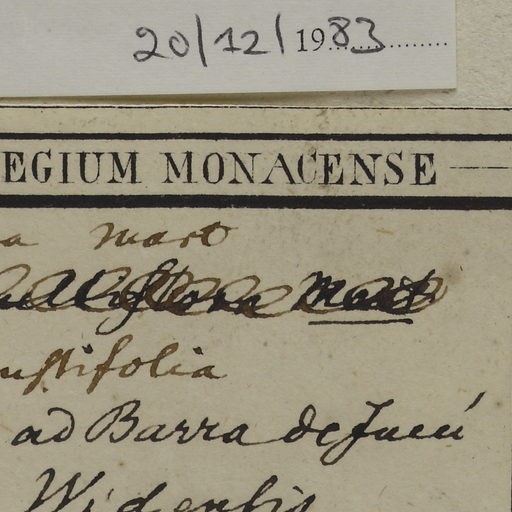 20/12/1983
EGIUM MONACENSE
a Mart
Mart
ustifolia
ad Barra de Jucú
Widensis